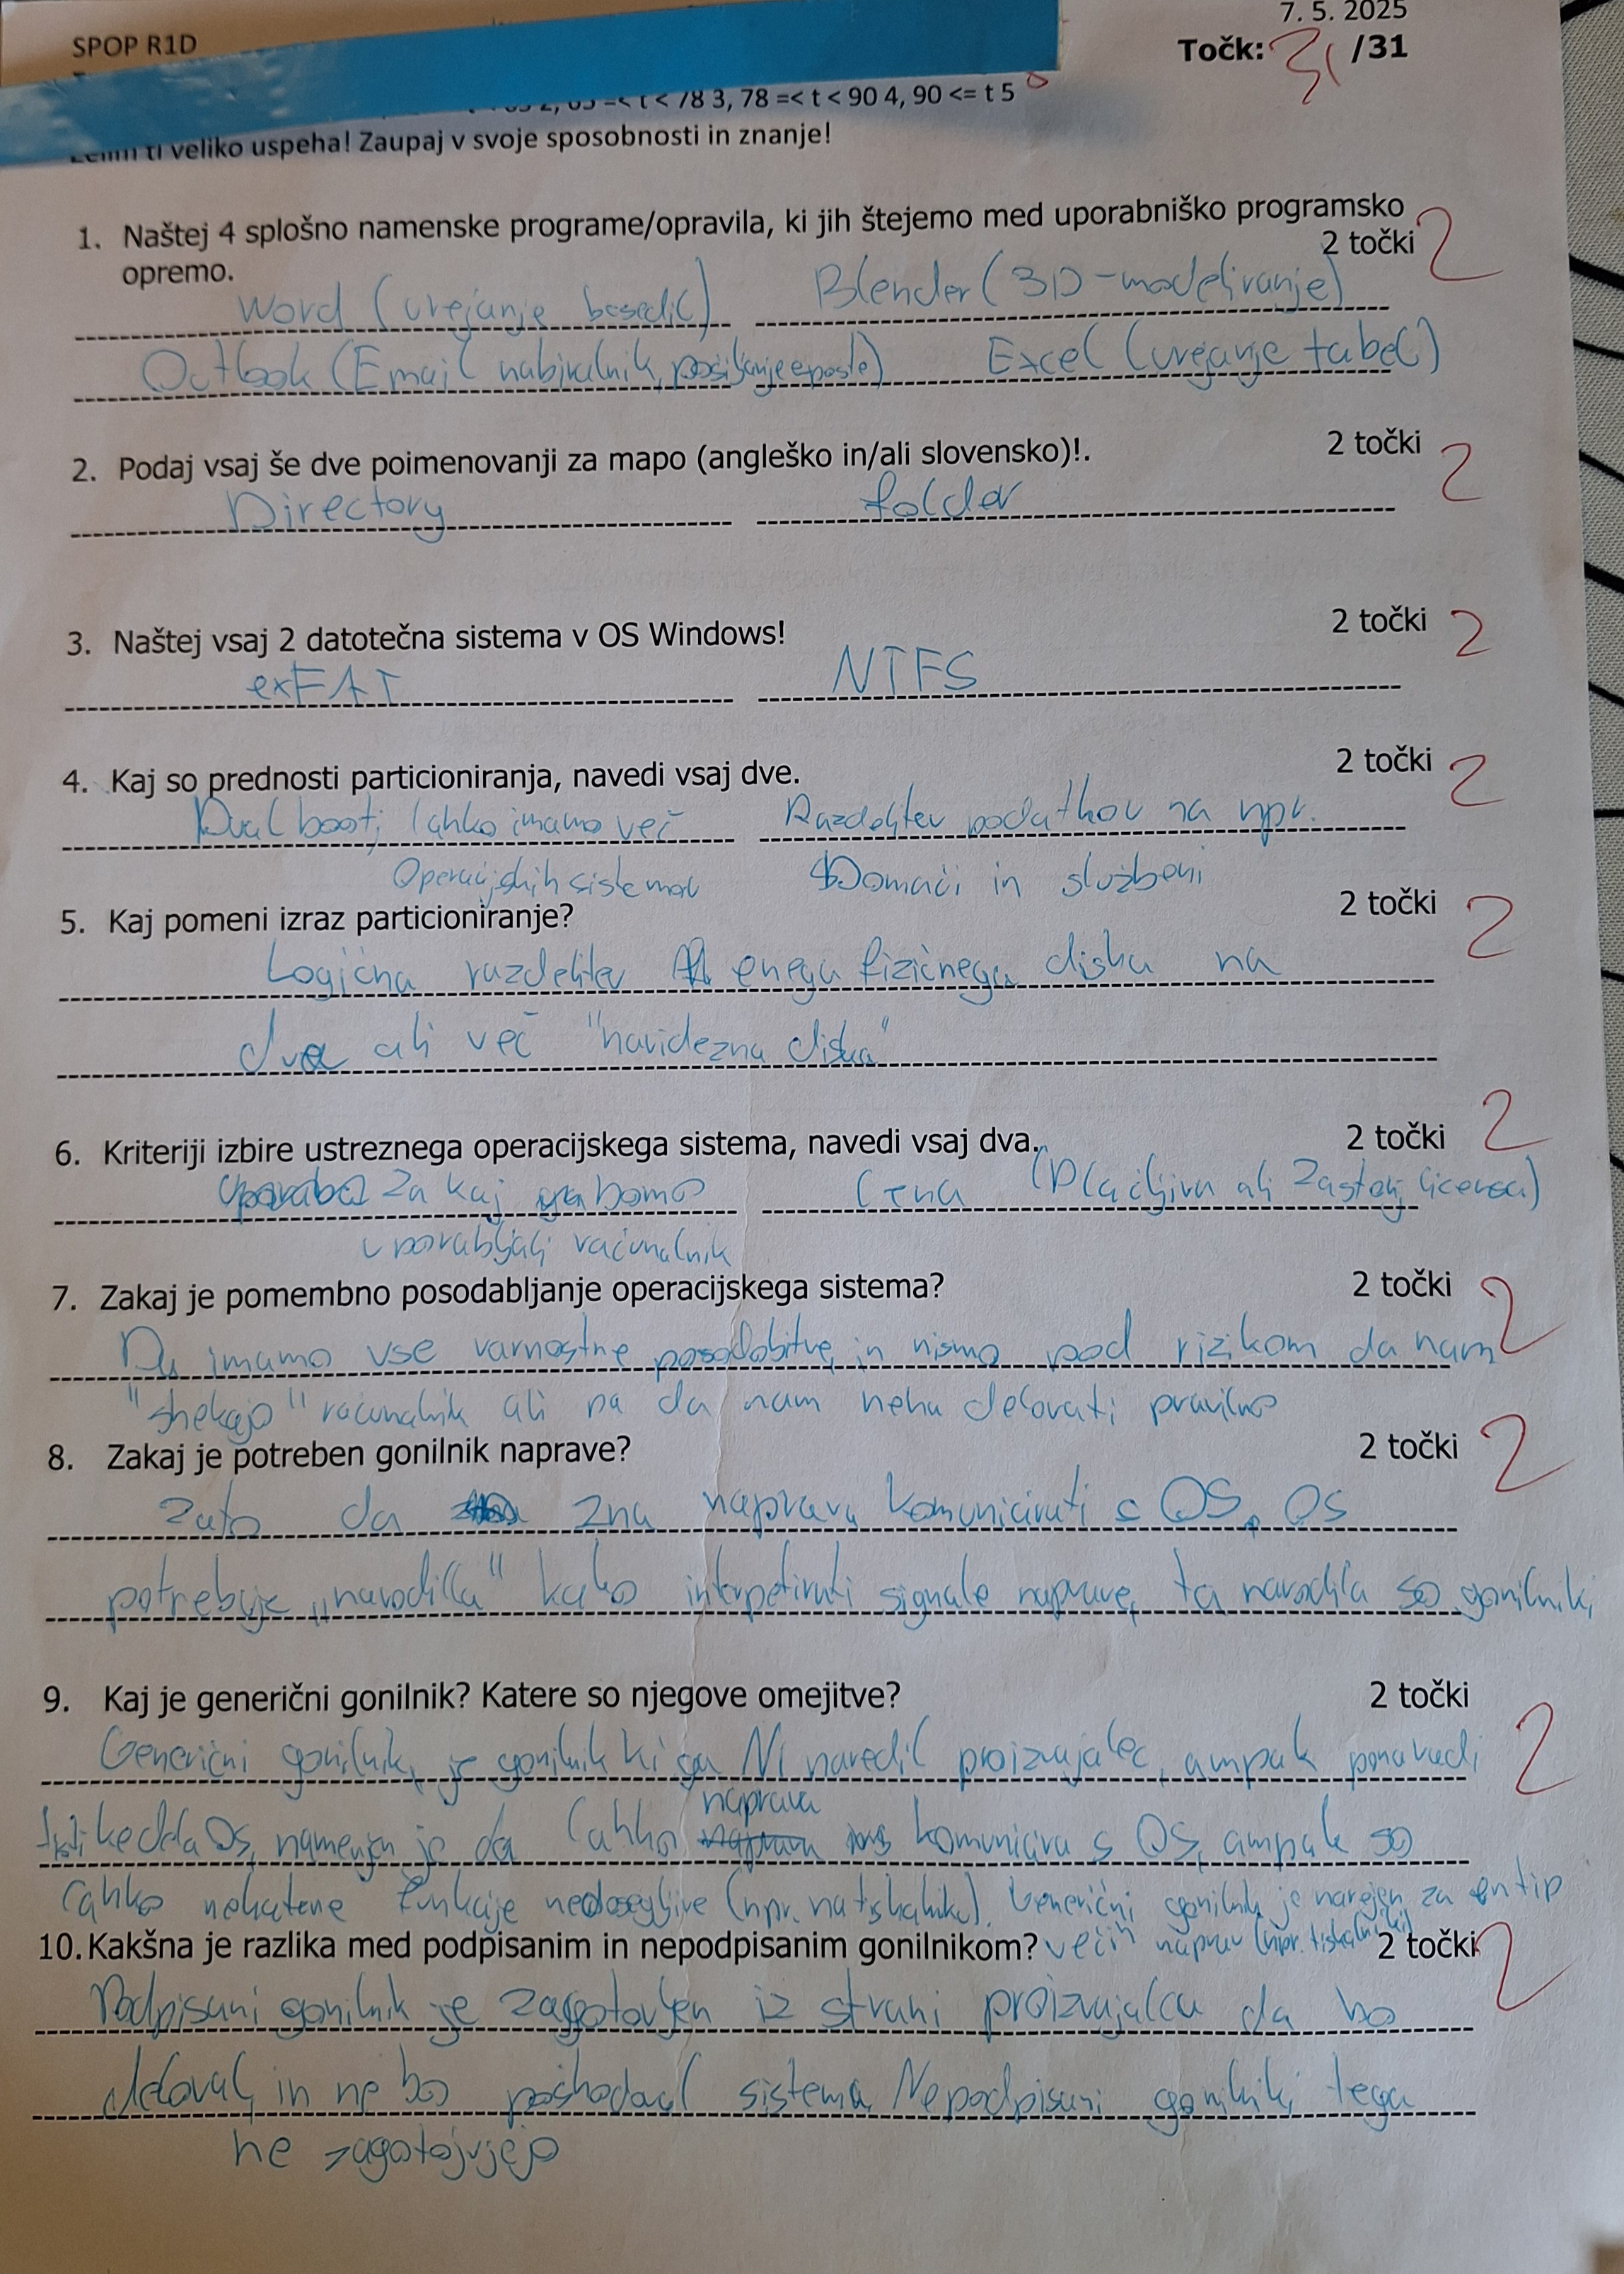 SPOP R1D
7. 5. 2025
Točk: 31 /31
=< t < 78 3, 78 =< t < 90 4, 90 <= t 5
ti veliko uspeha! Zaupaj v svoje sposobnosti in znanje!
1. Naštej 4 splošno namenske programe/opravila, ki jih štejemo med uporabniško programsko
opremo. 2 točki 2
Word (urejanje besedil) Blender (3D-modeliranje)
Outlook (Email nabiralnik, pošiljanje epošte) Excel (urejanje tabel)
2. Podaj vsaj še dve poimenovanji za mapo (angleško in/ali slovensko)!. 2 točki 2
Directory folder
3. Naštej vsaj 2 datotečna sistema v OS Windows! 2 točki 2
exFAT NTFS
4. Kaj so prednosti particioniranja, navedi vsaj dve. 2 točki 2
Dual boot, lahko imamo več Razdelitev podatkov na npr.
Operacijskih sistemov Domači in službeni
5. Kaj pomeni izraz particioniranje? 2 točki 2
Logična razdelitev enega fizičnega diska na
dva ali več "navidezna diska"
6. Kriteriji izbire ustreznega operacijskega sistema, navedi vsaj dva. 2 točki 2
Uporaba za kaj ga bomo Cena (Plačljiva ali Zastonj licenca)
uporabljali računalnik
7. Zakaj je pomembno posodabljanje operacijskega sistema? 2 točki 2
Da imamo vse varnostne posodobitve, in nismo pod rizikom da nam
"shekajo" računalnik ali pa da nam neha delovati pravilno
8. Zakaj je potreben gonilnik naprave? 2 točki 2
Zato da zna naprava komunicirati s OS, OS
potrebuje „navodilla" kako interpetirati signale naprave, ta navodila so gonilniki
9. Kaj je generični gonilnik? Katere so njegove omejitve? 2 točki 2
Generični gonilnik, je gonilnik ki ga NI naredil proizvajalec, ampak ponavadi
OS, namenjen je da lahko naprava komunicira s OS, ampak so
lahko nekatere funkcije nedosegljive (npr. na tiskalniku). Generični gonilnik je narejen za en tip
večih naprav (npr. tiskalniki)
10. Kakšna je razlika med podpisanim in nepodpisanim gonilnikom? 2 točki 2
Podpisani gonilnik je zagotovljen iz strani proizvajalca da bo
deloval, in ne bo poškodoval sistema. Nepodpisani gonilniki tega
ne zagotovjejo